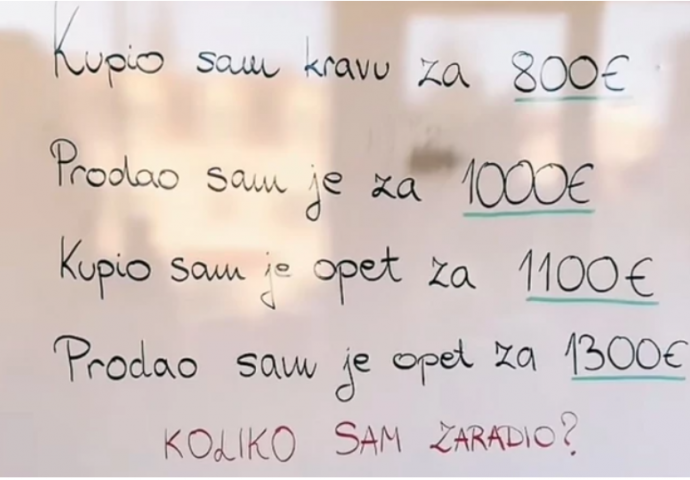 Kupio sam kravu za 800€
Prodao sam je za 1000€
Kupio sam je opet za 1100€
Prodao sam je opet za 1300€
KOLIKO SAM ZARADIO?